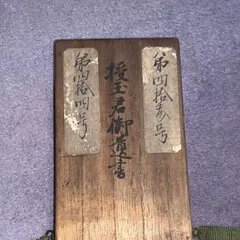 第四拾叁号
授玉君御遺書
第四拾四号